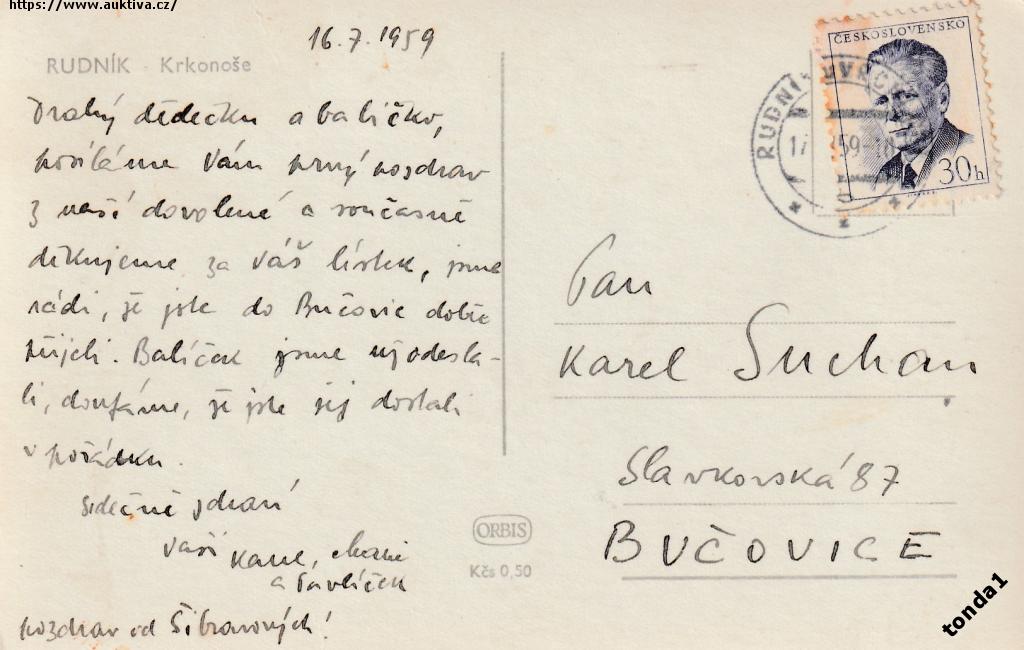 https://www.auktiva.cz/
16.7.1959
RUDNÍK - Krkonoše
Drahý dědečku a babičko,
posíláme Vám prvý pozdrav
z naší dovolené a současně
děkujeme za Váš lístek, jsme
rádi, že jste do Bučovic dobře
přijeli. Balíček jsme vyodesla-
li, doufáme, že jste jej dostali
v pořádku.
Srdečně zdraví
Vaši Karel, Marie
a Pavlíček
Pozdrav od Šibravových!
ORBIS
Kčs 0,50
ČESKOSLOVENSKO
30h
RUDNÍK
17
59-18
Pan
Karel Suchan
Slavkovská 87
BUČOVICE
tonda1